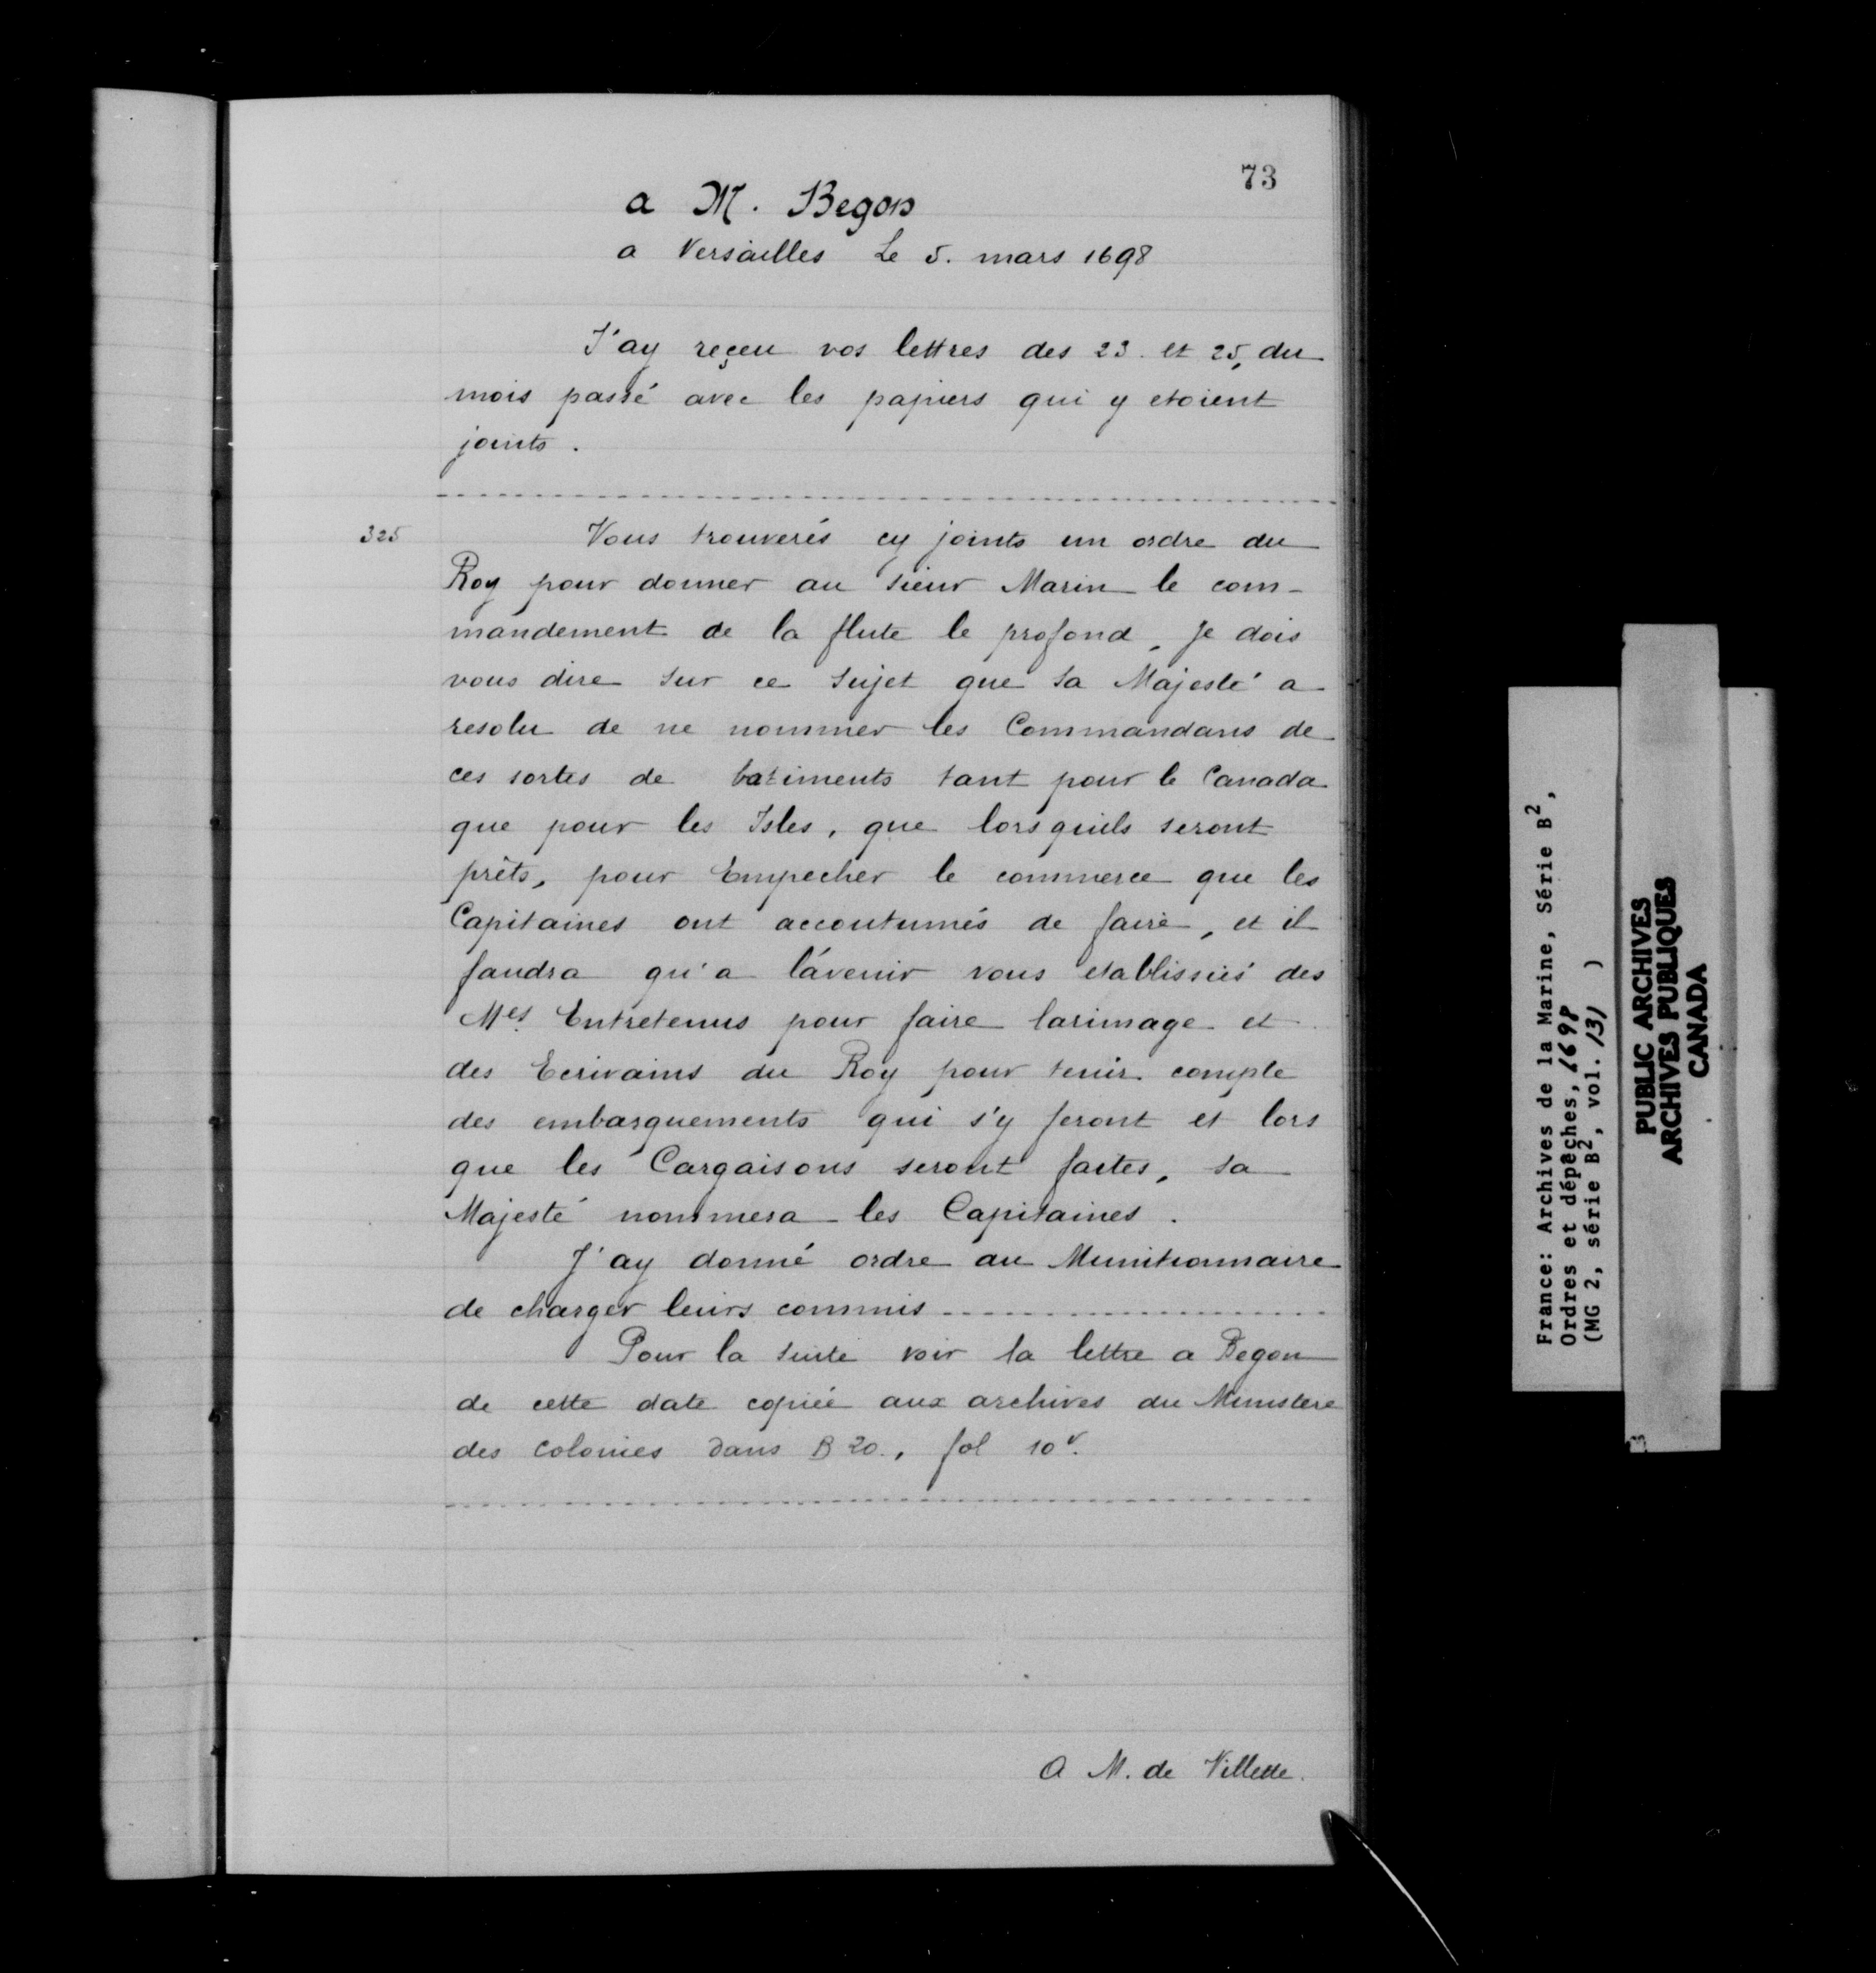 73
a M. Begon
a Versailles Le 5. mars 1698
J'ay reçeu vos lettres des 23. et 25, du
mois passé avec les papiers qui y etoient
joints.
325
Vous trouverés cy joints un ordre du
Roy pour donner au sieur Marin le com-
mandement de la flute le profond, Je dois
vous dire sur ce sujet que sa Majesté a
resolu de ne nommer les Commandans de
ces sortes de batiments tant pour le Canada
que pour les Isles, que lors quils seront
prêts, pour Empecher le commerce que les
Capitaines ont accoutumés de faire, et il
faudra qu'a l'avenir vous etablissiés des
Mes Entretenus pour faire larimage et
des Ecrivains du Roy pour tenir compte
des embarquements qui s'y feront et lors
que les Cargaisons seront faites, sa
Majesté nommera les Capitaines.
J'ay donné ordre au Munitionnaire
de charger leurs commis
Pour la suite voir la lettre a Begon
de cette date copiée aux archives du Ministere
des colonies dans B 20., fol 10v.
A M. de Villette.
France: Archives de la Marine, Série B2,
Ordres et dépêches, 1698
(MG 2, série B2, vol. 131 )
PUBLIC ARCHIVES
ARCHIVES PUBLIQUES
CANADA